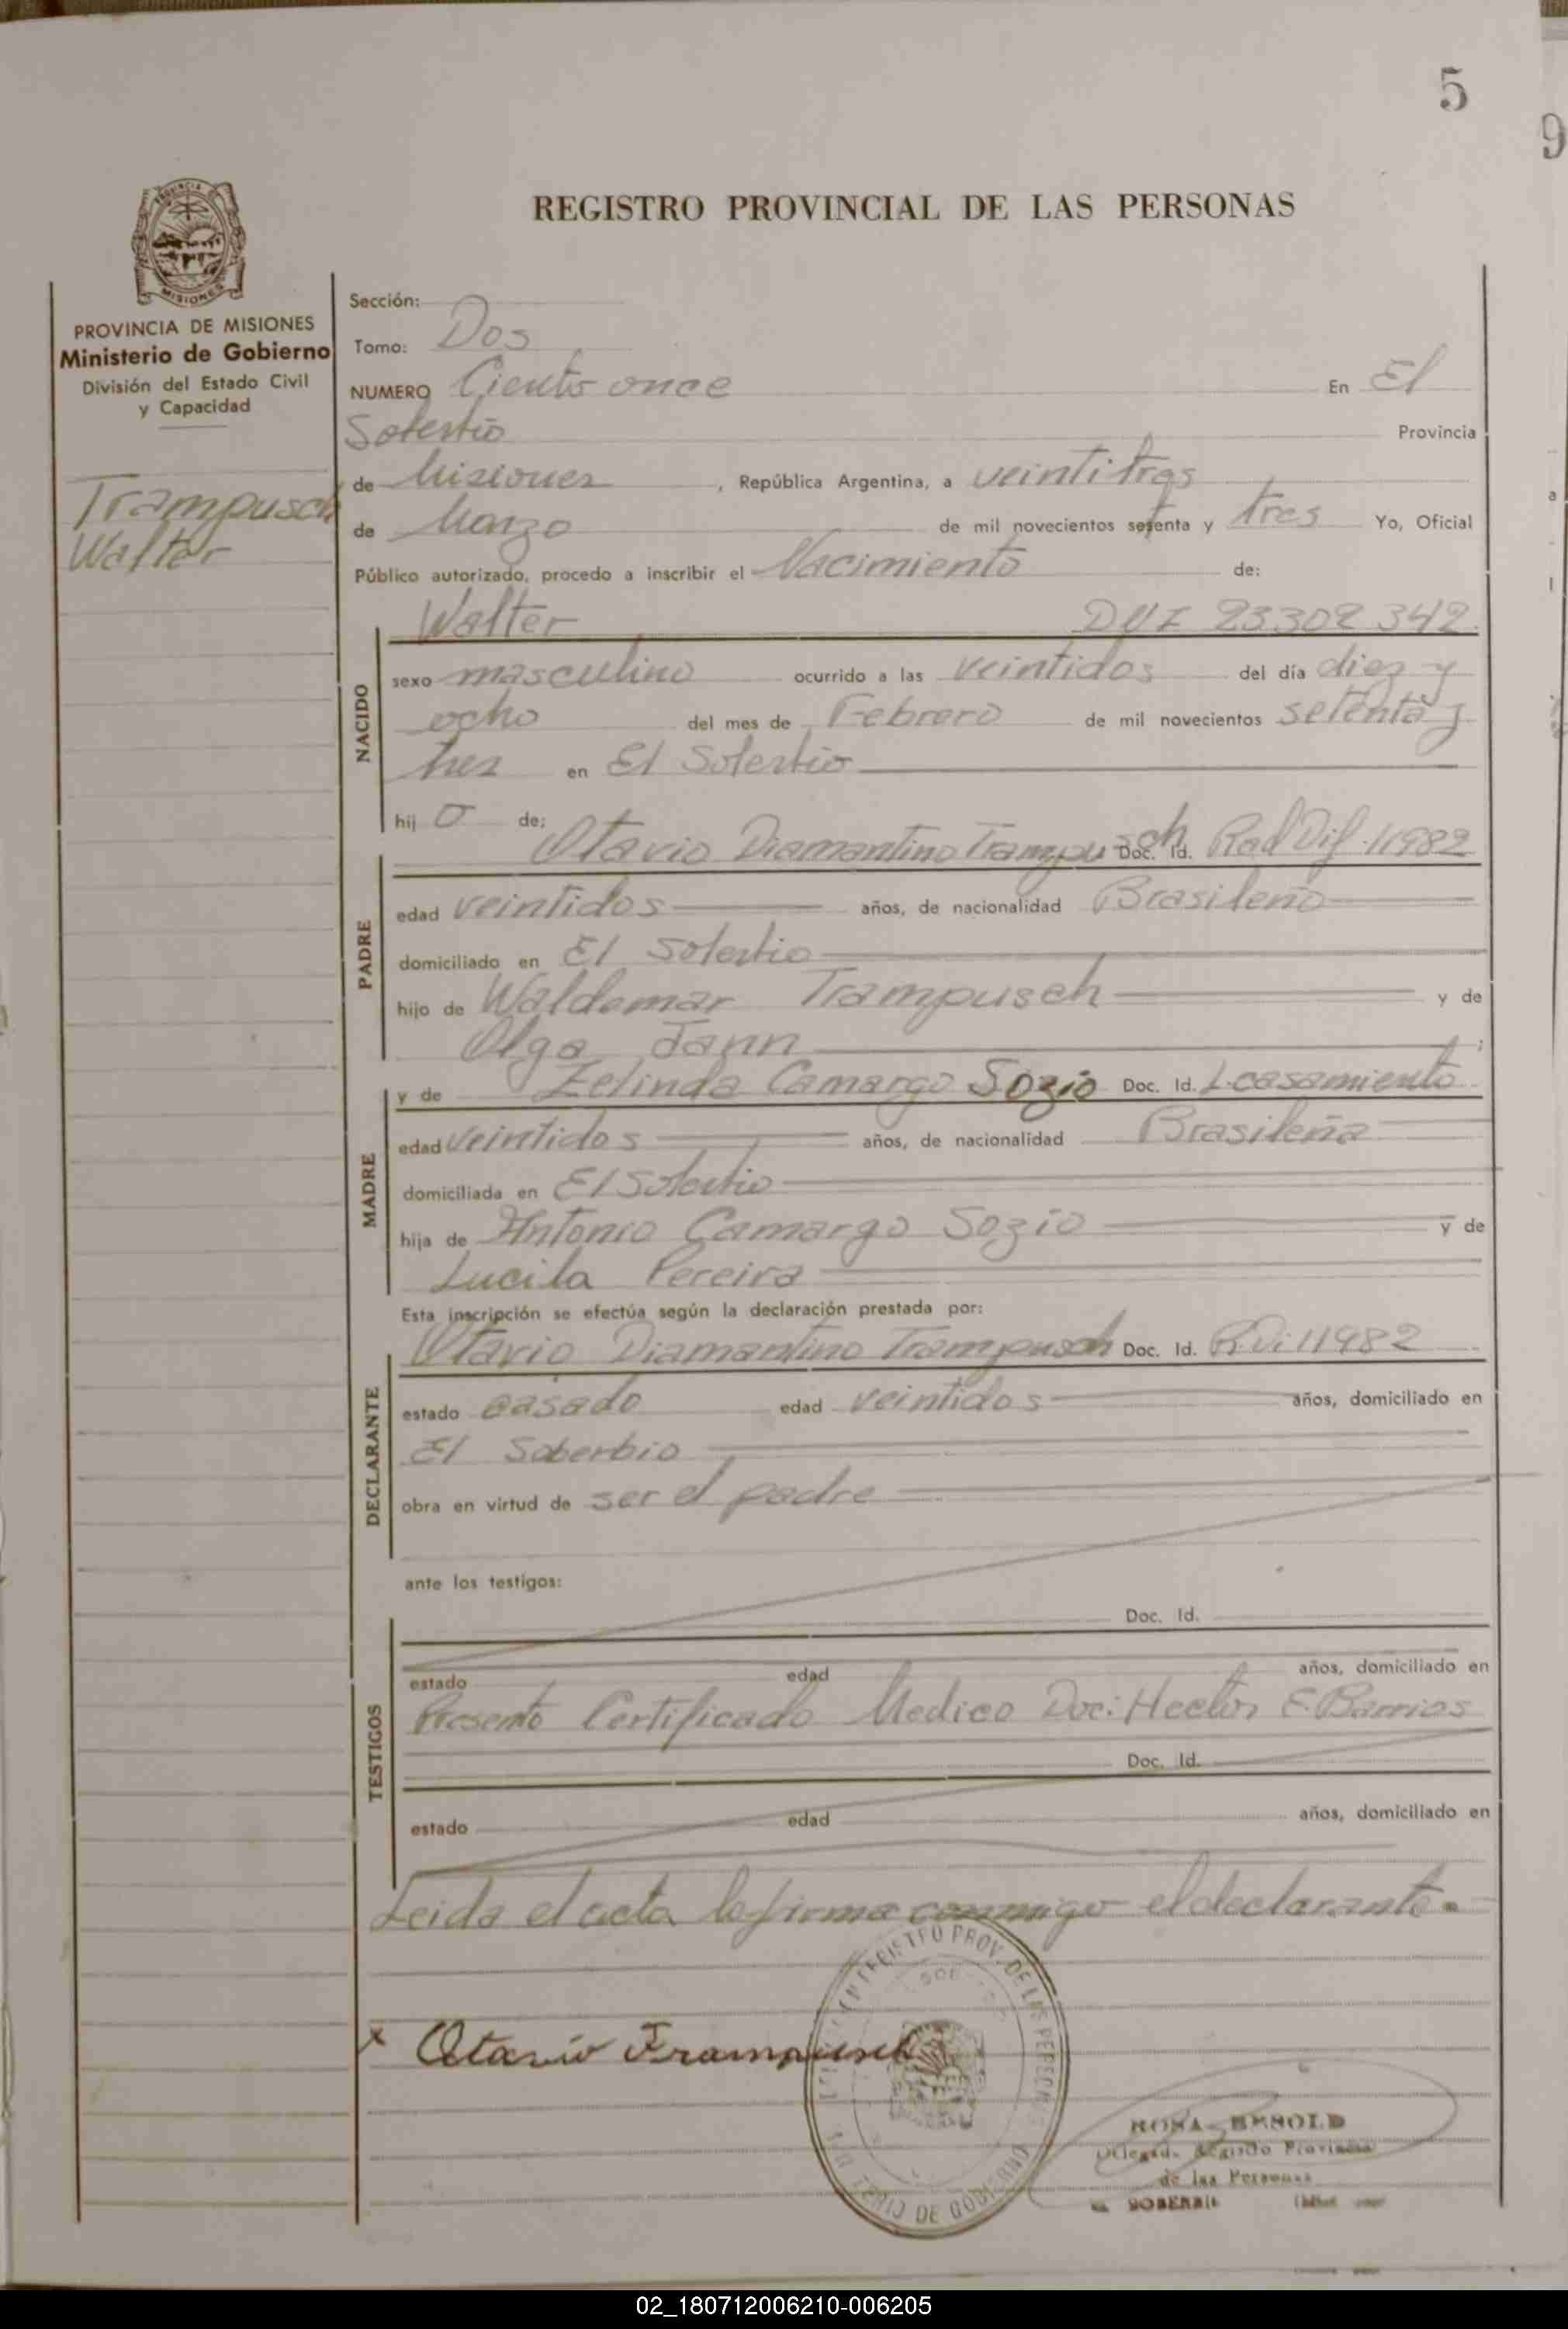 5
9
REGISTRO PROVINCIAL DE LAS PERSONAS
MISIONES
PROVINCIA DE MISIONES
Ministerio de Gobierno
División del Estado Civil
y Capacidad
Trampusch
Walter
Sección:
Tomo: Dos
NUMERO Ciento once En El
Soberbio Provincia
de Misiones, República Argentina, a veintitres
de Marzo de mil novecientos setenta y tres Yo, Oficial
Público autorizado, procedo a inscribir el Nacimiento de:
Walter DNI 23.302.342.
NACIDO
sexo masculino ocurrido a las veintidos del día diez y
ocho del mes de Febrero de mil novecientos setenta y
tres en El Soberbio
hij o de:
Otavio Diamantino Trampusch Doc. Id. Rad Dif. 11982
PADRE
edad veintidos años, de nacionalidad Brasileño
domiciliado en El Soberbio
hijo de Waldemar Trampusch y de
Olga Jann ;
y de Zelinda Camargo Sozio Doc. Id. L. casamiento
MADRE
edad veintidos años, de nacionalidad Brasileña
domiciliada en El Soberbio
hija de Antonio Camargo Sozio y de
Lucila Pereira
Esta inscripción se efectúa según la declaración prestada por:
Otavio Diamantino Trampusch Doc. Id. R.Di 11982
DECLARANTE
estado casado edad veintidos años, domiciliado en
El Soberbio
obra en virtud de ser el padre
ante los testigos:
Doc. Id.
TESTIGOS
estado edad años, domiciliado en
Presento Certificado Medico Doc: Hector E. Barrios
Doc. Id.
estado edad años, domiciliado en
Leida el acta la firma conmigo el declarante.
x Otavio Trampusch
REGISTRO PROV. DE LAS PERSONAS
DE GOBIERNO
ROSA BENOLD
Registro Provincial
de las Personas
SOBERBIO
02_180712006210-006205